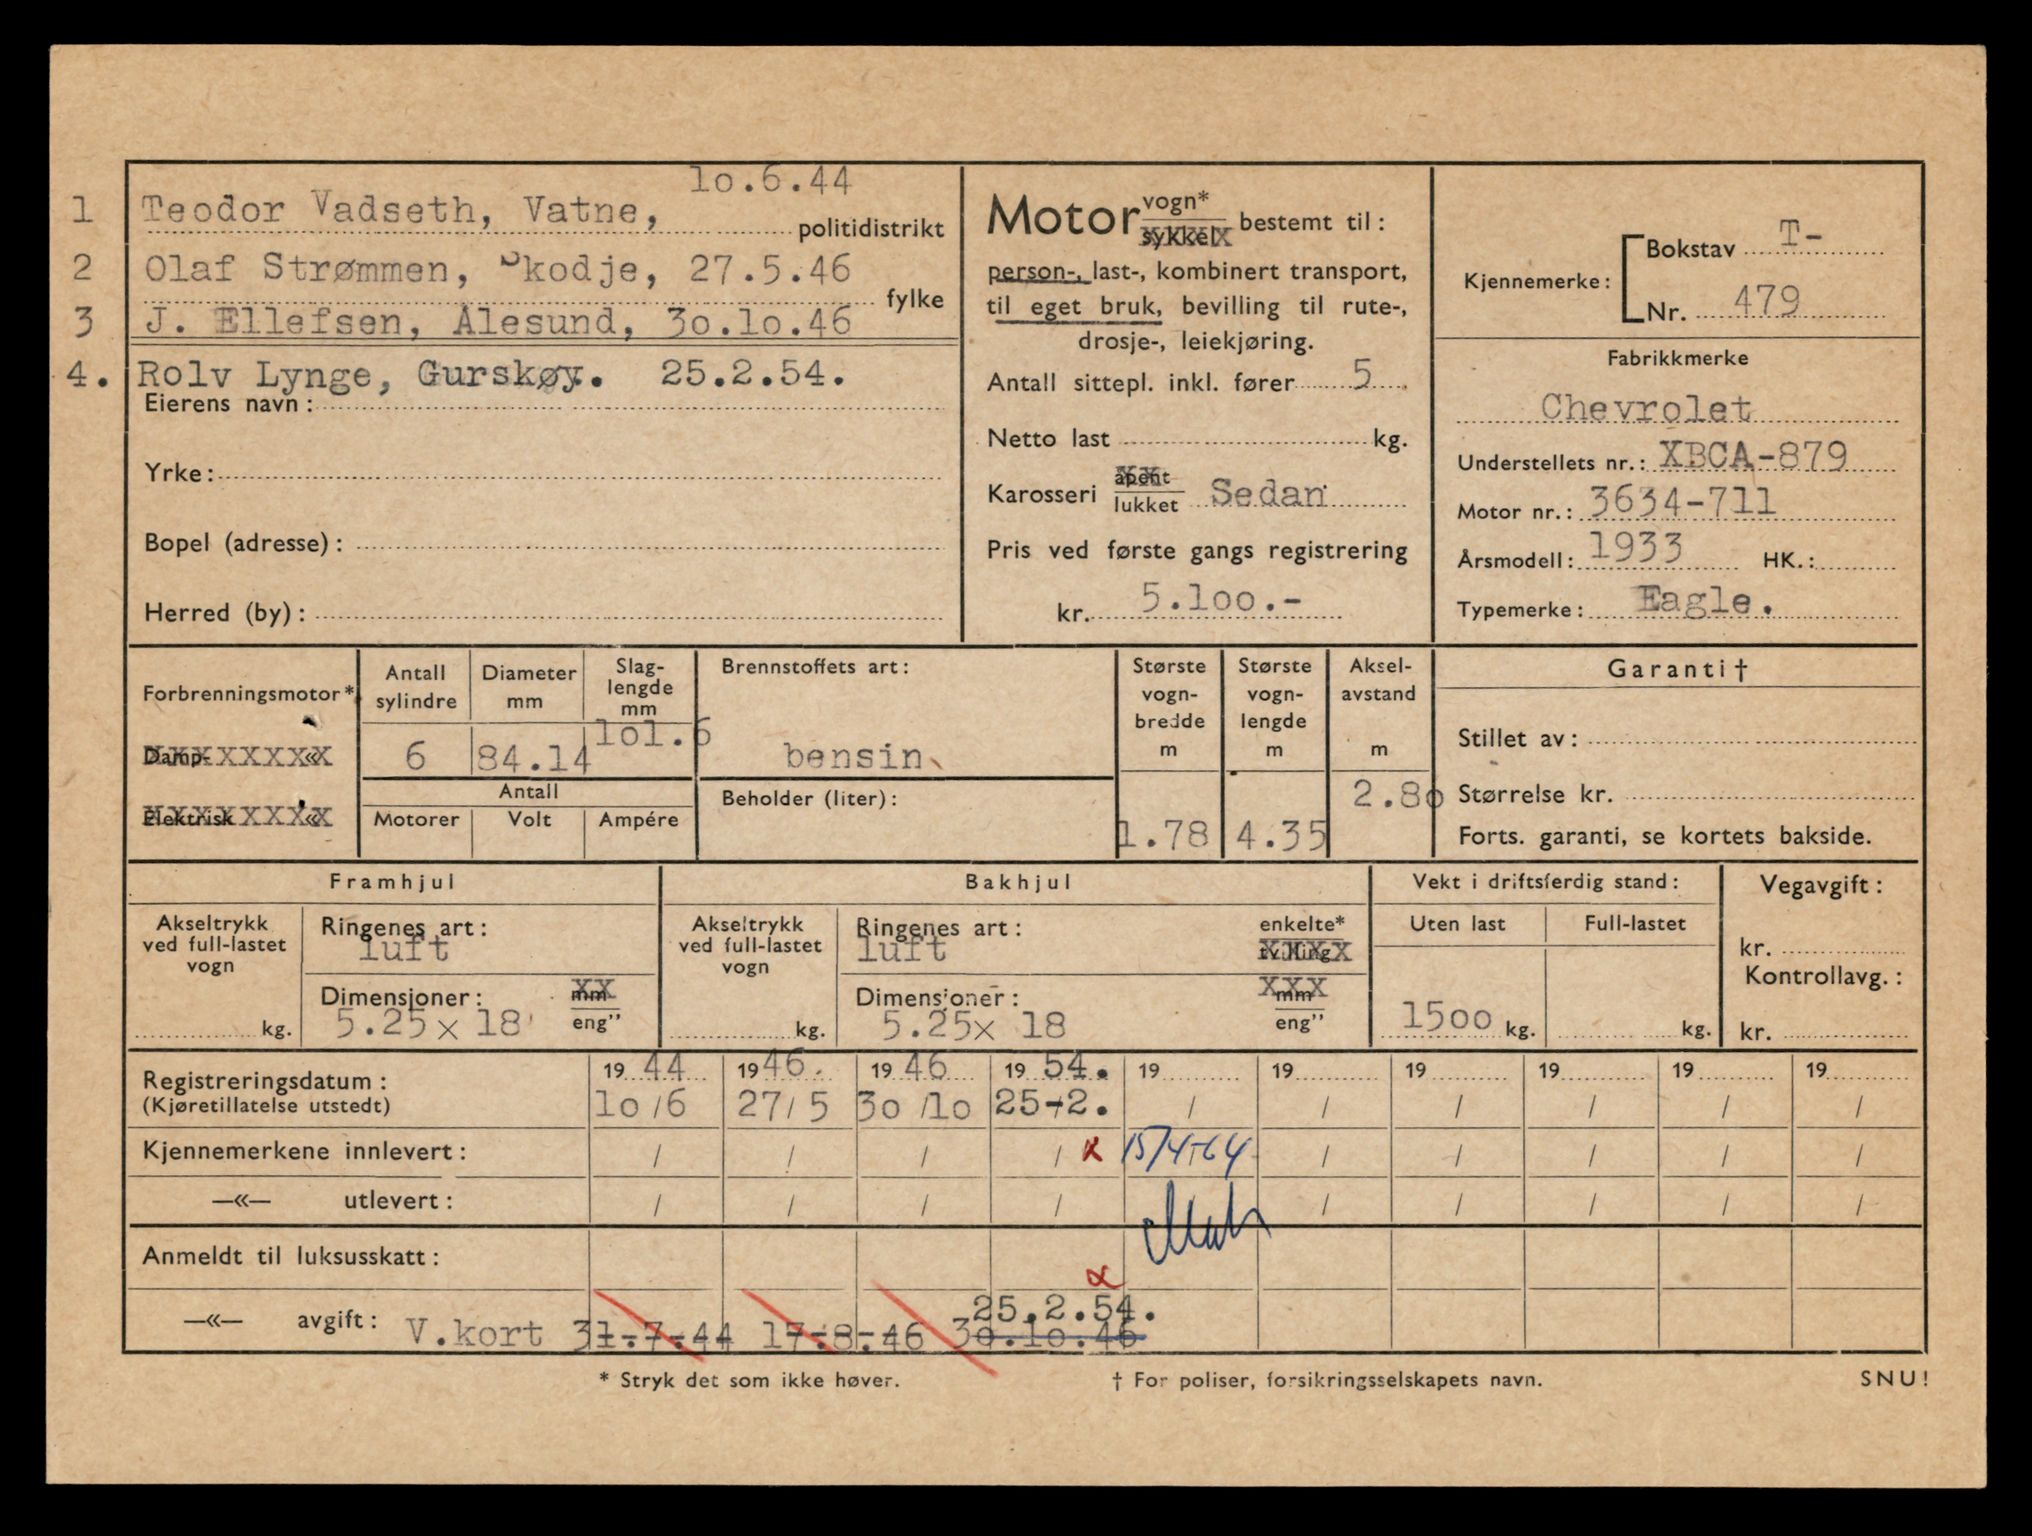 1 Teodor Vadseth, Vatne, 10.6.44 politidistrikt
2 Olaf Strømmen, Skodje, 27.5.46 fylke
3 J. Ellefsen, Ålesund, 30.10.46
4. Rolv Lynge, Gurskøy. 25.2.54.
Eierens navn:
Yrke:
Bopel (adresse):
Herred (by):
Motor vogn* sykkel bestemt til:
person-, last-, kombinert transport,
til eget bruk, bevilling til rute-,
drosje-, leiekjøring.
Antall sittepl. inkl. fører 5
Netto last kg.
Karosseri åpent lukket Sedan
Pris ved første gangs registrering
kr. 5.100.-
Kjennemerke: Bokstav T-
Nr. 479
Fabrikkmerke
Chevrolet
Understellets nr.: XBCA-879
Motor nr.: 3634-711
Årsmodell: 1933 HK.:
Typemerke: Eagle.
Forbrenningsmotor*
Damp- «
Elektrisk «
Antall sylindre
6
Diameter mm
84.14
Slag-lengde mm
101.6
Antall
Motorer Volt Ampére
Brennstoffets art:
bensin
Beholder (liter):
Største vogn-bredde m
1.78
Største vogn-lengde m
4.35
Aksel-avstand m
2.80
Garanti†
Stillet av:
Størrelse kr.
Forts. garanti, se kortets bakside.
Framhjul
Akseltrykk ved full-lastet vogn
kg.
Ringenes art:
luft
Dimensjoner: mm
5.25x 18 eng"
Bakhjul
Akseltrykk ved full-lastet vogn
kg.
Ringenes art: enkelte*
luft tvilling
Dimensjoner: mm
5.25x 18 eng"
Vekt i driftsferdig stand:
Uten last Full-lastet
1500 kg. kg.
Vegavgift:
kr.
Kontrollavg.:
kr.
Registreringsdatum: 19 44 19 46. 19 46 19 54. 19 19 19 19 19 19
(Kjøretillatelse utstedt) 10/6 27/5 30/10 25-2. / / / / / /
Kjennemerkene innlevert: / / / / x 15/4-64 / / / / /
—«— utlevert: / / / / / / / / /
Anmeldt til luksusskatt:
x
25.2.54.
—«— avgift: V.kort 31.7.44 17.8.46 30.10.46
* Stryk det som ikke høver. † For poliser, forsikringsselskapets navn. SNU!